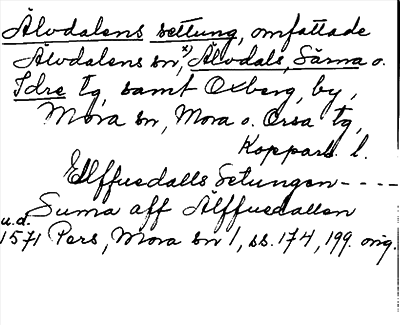 Älvdalens settung, omfattade
Älvdalens sn,*) Älvdals, Särna o.
Idre tg, samt Oxberg, by,
Mora sn, Mora o. Orsa tg,
Kopparb. l.
Elffuedalls Setungen ----
Suma aff Älffuedallen
u.d.
1571 Pers, Mora sn 1, ss. 174, 199. orig.